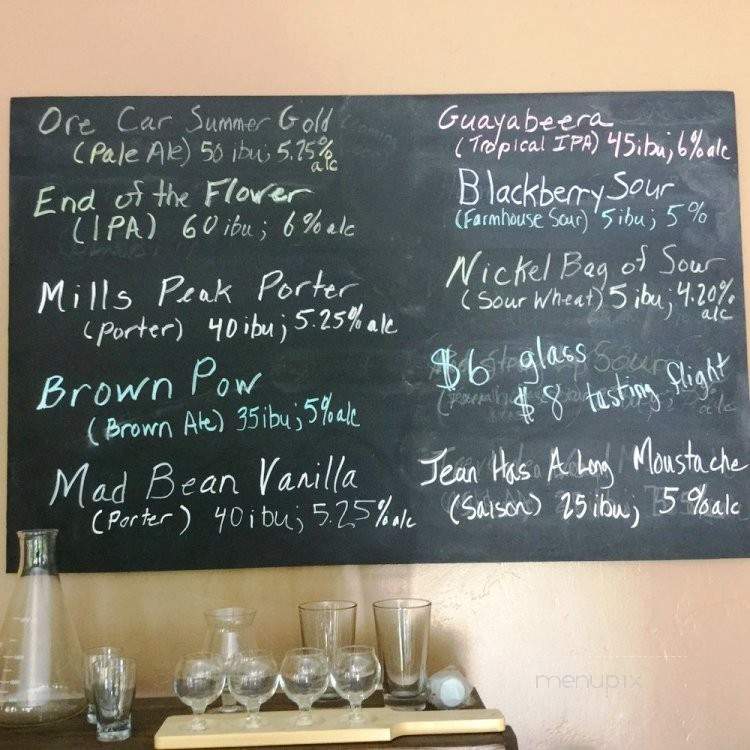 Ore Car Summer Gold
(Pale Ale) 50 ibu; 5.25% alc
End of the Flower
(IPA) 60 ibu; 6% alc
Mills Peak Porter
(Porter) 40 ibu; 5.25% alc
Brown Pow
(Brown Ale) 35 ibu; 5% alc
Mad Bean Vanilla
(Porter) 40 ibu; 5.25% alc
Guayabeera
(Tropical IPA) 45 ibu; 6% alc
Blackberry Sour
(Farmhouse Sour) 5 ibu; 5%
Nickel Bag of Sour
(Sour Wheat) 5 ibu; 4.20% alc
$6 glass
$8 tasting flight
Jean Has A Long Moustache
(Saison) 25 ibu; 5% alc
menupix